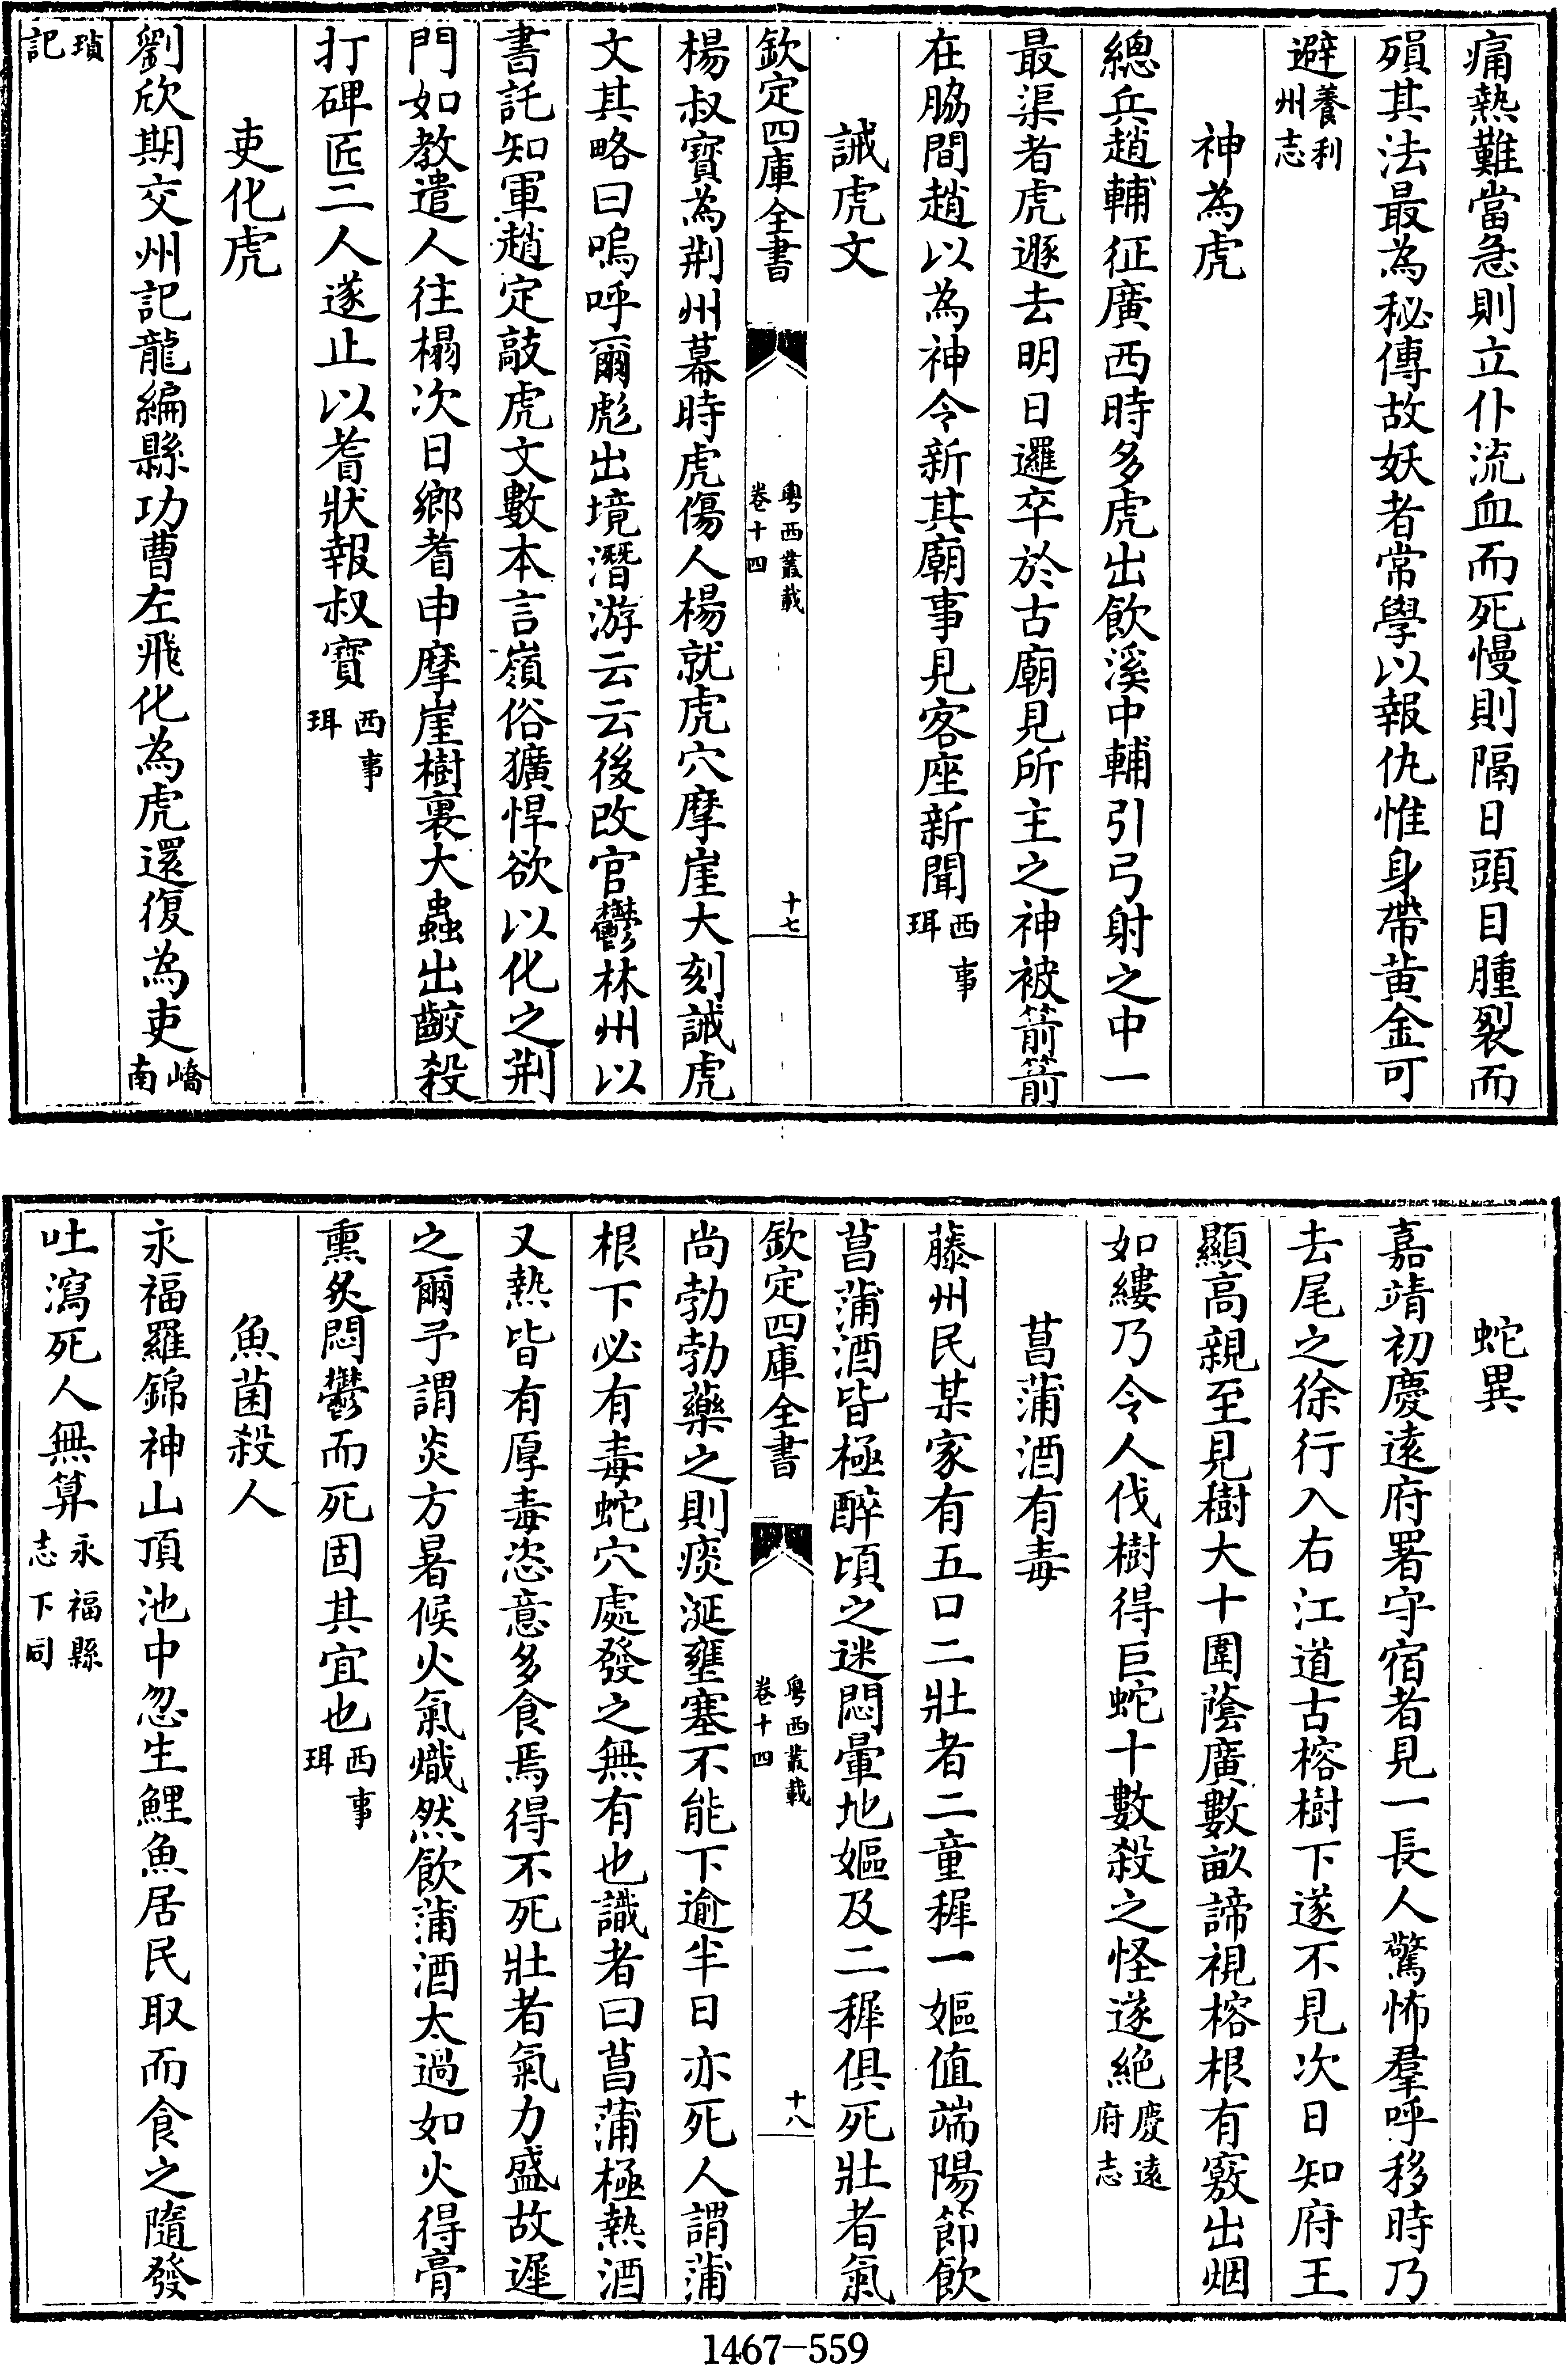 痛熱難當急則立仆流血而死慢則隔日頭目腫裂而
殞其法最為秘傳故妖者常學以報仇惟身帶黄金可
避養利州志
神為虎
總兵趙輔征廣西時多虎出飲溪中輔引弓射之中一
最渠者虎遯去明日邏卒於古廟見所主之神被箭箭
在脇間趙以為神令新其廟事見客座新聞西事珥
誡虎文
欽定四庫全書
粤西叢載
卷十四
十七
楊叔寳為荆州幕時虎傷人楊就虎穴摩崖大刻誡虎
文其略曰嗚呼爾彪出境潛游云云後改官鬱林州以
書託知軍趙定敲虎文數本言嶺俗獷悍欲以化之荆
門如教遣人往榻次日鄉耆申摩崖樹裏大蟲出齩殺
打碑匠二人遂止以耆狀報叔寳西事珥
吏化虎
劉欣期交州記龍編縣功曹左飛化為虎還復為吏嶠南
瑣記
蛇異
嘉靖初慶遠府署守宿者見一長人驚怖羣呼移時乃
去尾之徐行入右江道古榕樹下遂不見次日知府王
顯高親至見樹大十圍蔭廣數畝諦視榕根有竅出烟
如縷乃令人伐樹得巨蛇十數殺之怪遂絶慶遠府志
菖蒲酒有毒
藤州民某家有五口二壯者二童穉一嫗值端陽節飲
菖蒲酒皆極醉頃之迷悶暈地嫗及二穉俱死壯者氣
欽定四庫全書
粤西叢載
卷十四
十八
尚勃勃藥之則痰涎壅塞不能下逾半日亦死人謂蒲
根下必有毒蛇穴處發之無有也識者曰菖蒲極熱酒
又熱皆有厚毒恣意多食焉得不死壯者氣力盛故遲
之爾予謂炎方暑候火氣熾然飲蒲酒太過如火得膏
熏炙悶鬱而死固其宜也西事珥
魚菌殺人
永福羅錦神山頂池中忽生鯉魚居民取而食之隨發
吐瀉死人無算永福縣志下同
1467-559